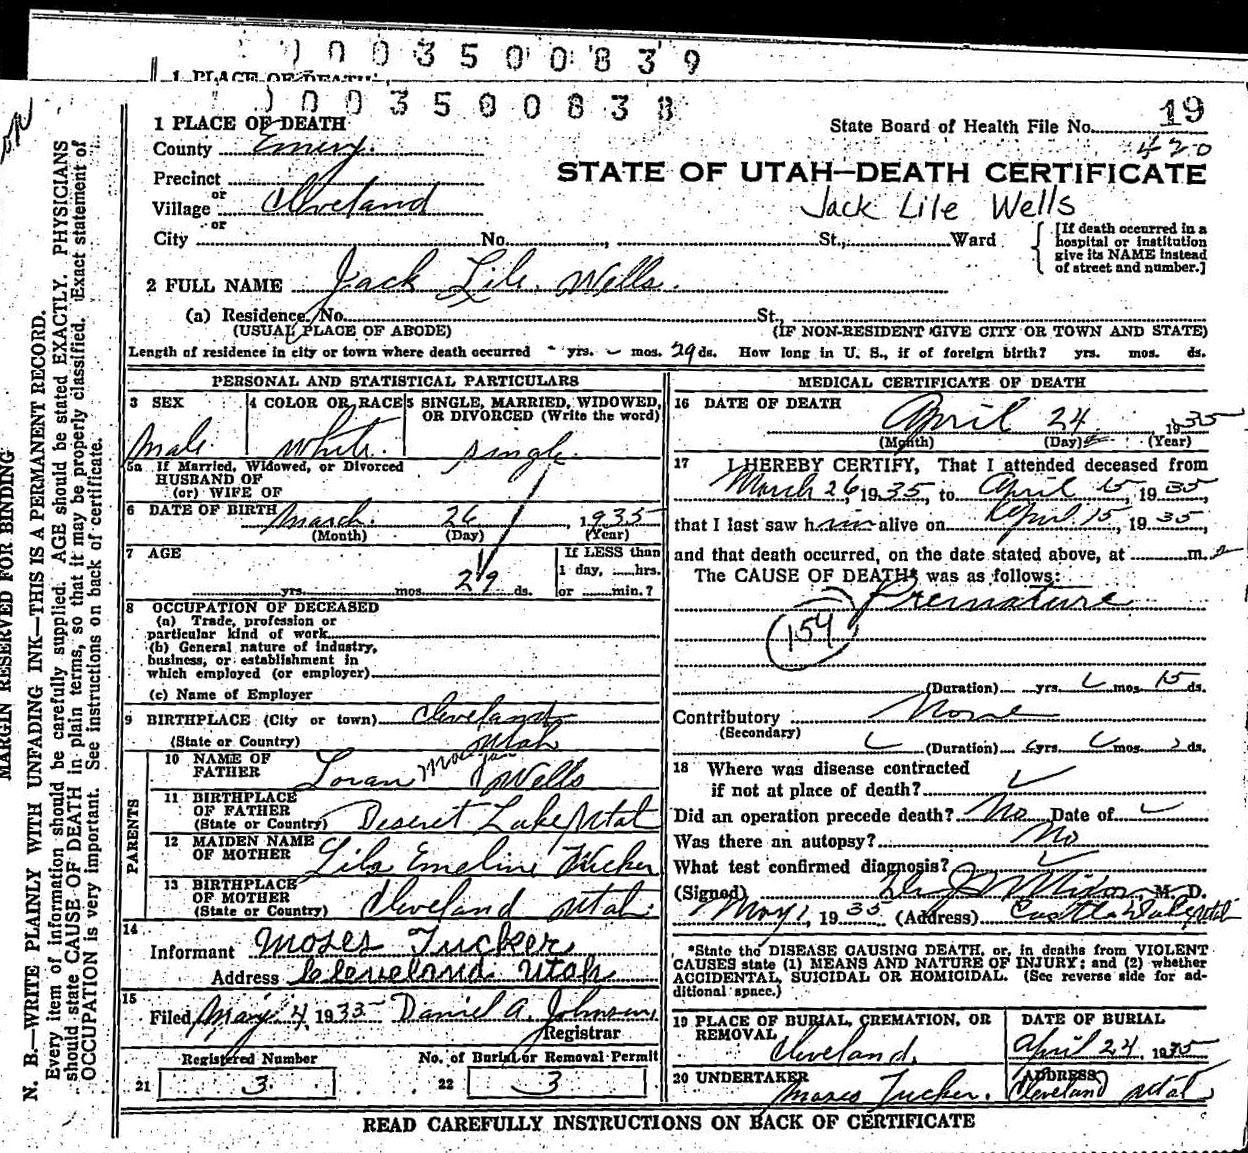 0003500839
1 PLACE OF DEATH
0003500838
1 PLACE OF DEATH
State Board of Health File No. 19
420
County Emery.
STATE OF UTAH—DEATH CERTIFICATE
Precinct
or
Village Cleveland
Jack Lile Wells
or
City No. , St., Ward
[If death occurred in a hospital or institution give its NAME instead of street and number.]
2 FULL NAME Jack Lile Wells.
(a) Residence, No. St.,
(USUAL PLACE OF ABODE) (IF NON-RESIDENT GIVE CITY OR TOWN AND STATE)
Length of residence in city or town where death occurred - yrs. - mos. 29 ds. How long in U. S., if of foreign birth? yrs. mos. ds.
PERSONAL AND STATISTICAL PARTICULARS
3 SEX
Male
4 COLOR OR RACE
White.
5 SINGLE, MARRIED, WIDOWED, OR DIVORCED (Write the word)
Single.
5a If Married, Widowed, or Divorced
HUSBAND OF
(or) WIFE OF
6 DATE OF BIRTH March. 26, 1935
(Month) (Day) (Year)
7 AGE
yrs. mos. 29 ds.
If LESS than
1 day, hrs.
or min.?
8 OCCUPATION OF DECEASED
(a) Trade, profession or
particular kind of work
(b) General nature of industry,
business, or establishment in
which employed (or employer)
(c) Name of Employer
9 BIRTHPLACE (City or town) Cleveland
(State or Country) Utah
PARENTS
10 NAME OF FATHER Loran Wells
11 BIRTHPLACE OF FATHER
(State or Country) Deseret Lake, Utah
12 MAIDEN NAME OF MOTHER Lila Emeline Tucker
13 BIRTHPLACE OF MOTHER
(State or Country) Cleveland Utah.
14
Informant Moses Tucker
Address Cleveland Utah
15
Filed May 4 1935 Daniel A. Johnson
Registrar
Registered Number
21 3
No. of Burial or Removal Permit
22 3
MEDICAL CERTIFICATE OF DEATH
16 DATE OF DEATH
April 24 1935
(Month) (Day) (Year)
17 I HEREBY CERTIFY, That I attended deceased from
March 26, 1935, to April 15, 1935,
that I last saw him alive on April 15, 1935,
and that death occurred, on the date stated above, at m.
The CAUSE OF DEATH* was as follows:
Premature
154
(Duration) yrs. mos. 15 ds.
Contributory None
(Secondary)
(Duration) yrs. mos. ds.
18 Where was disease contracted
if not at place of death?
Did an operation precede death? No Date of
Was there an autopsy? No
What test confirmed diagnosis?
(Signed) M. D.
May 1, 1935 (Address) Castle Dale, Utah
*State the DISEASE CAUSING DEATH, or, in deaths from VIOLENT
CAUSES state (1) MEANS AND NATURE OF INJURY; and (2) whether
ACCIDENTAL, SUICIDAL OR HOMICIDAL. (See reverse side for ad-
ditional space.)
19 PLACE OF BURIAL, CREMATION, OR REMOVAL
Cleveland,
DATE OF BURIAL
April 24, 1935
20 UNDERTAKER
Moses Tucker.
ADDRESS
Cleveland Utah
READ CAREFULLY INSTRUCTIONS ON BACK OF CERTIFICATE
MARGIN RESERVED FOR BINDING
N. B.—WRITE PLAINLY WITH UNFADING INK—THIS IS A PERMANENT RECORD.
Every item of information should be carefully supplied. AGE should be stated EXACTLY. PHYSICIANS
should state CAUSE OF DEATH in plain terms, so that it may be properly classified. Exact statement of
OCCUPATION is very important. See instructions on back of certificate.